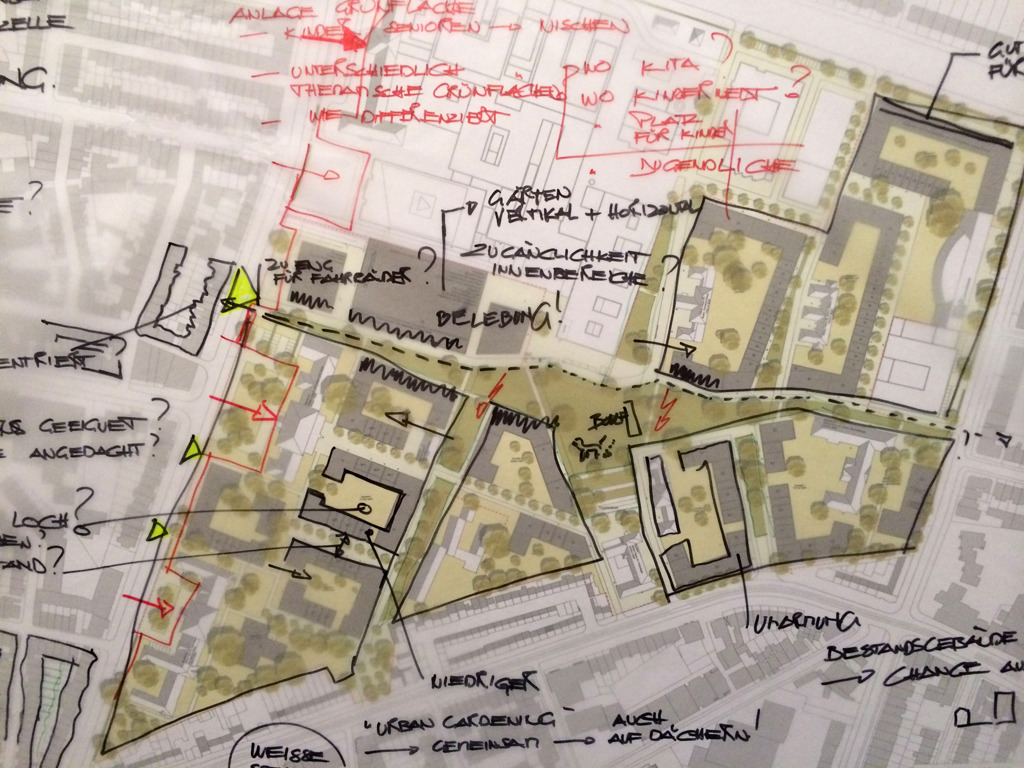 ZELLE
NG.
ANLAGE GRÜNFLÄCHE
— KINDER SENIOREN → NISCHEN
— UNTERSCHIEDLICH
THEMATISCHE GRÜNFLÄCHEN
— WIE DIFFERENZIERT
?
WO KITA
WO KINDERNEST ?
PLATZ
FÜR KINDER
JUGENDLICHE
GUT
FÜR
?
GÄRTEN
VERTIKAL + HORIZONTAL
ZUGÄNGLICHKEIT
INNENBEREICHE ?
ZU ENG
FÜR FAHRRÄDER ?
BELEBUNG!
ENTRIERT ?
GEEIGNET ?
ANGEDACHT?
LOCH ?
?
NIEDRIGER
UMARMUNG
BESTANDSGEBÄUDE
→ CHANCE
"URBAN GARDENING" → AUCH
→ GEMEINSAM → AUF DÄCHERN!
WEISSE